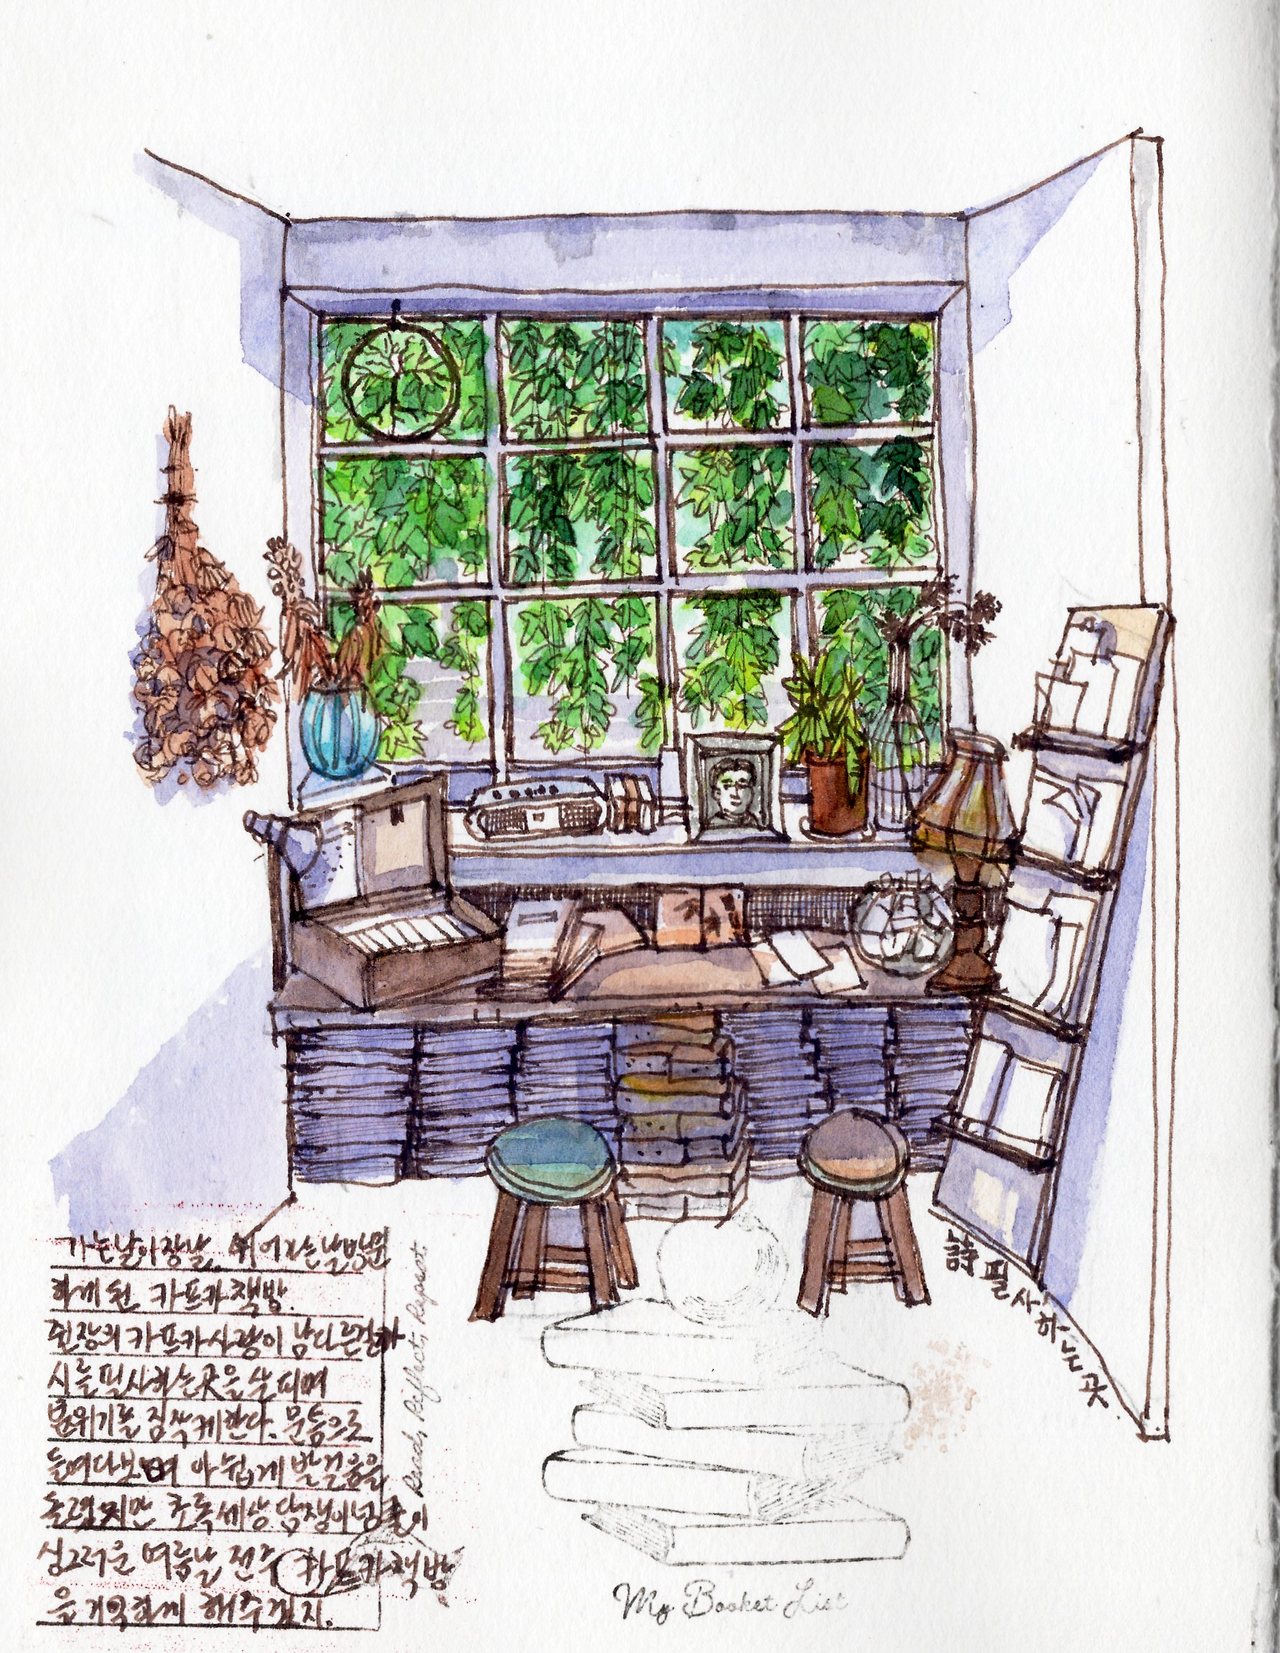 가는날이 장날. 쉬어가는날 방문
하게 된 카프카 책방.
쥔장의 카프카 사랑이 남다른건가
시를 필사하는 곳을 살피며
분위기를 짐작케한다. 문틈으로
들여다보며 아쉽게 발걸음을
돌렸지만 초록세상 담쟁이넝쿨이
싱그러운 여름날 전주 카프카 책방
을 기억하게 해주겠지.
Read, Reflect, Repeat
詩 필사하는 곳
My Booket List